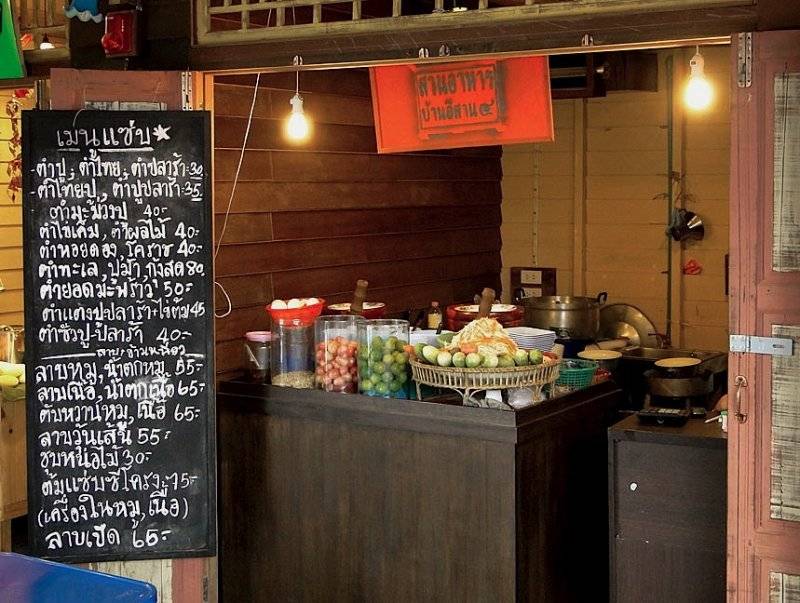 เมนูแซ่บ
ตำปู, ตำไทย, ตำปลาร้า 30.
ตำไทยปู, ตำปูปลาร้า 35.
ตำมะม่วงปู 40.-
ตำไข่เค็ม, ตำผลไม้ 40.-
ตำหอยดอง, โคราช 40.-
ตำทะเล, ปูม้า, กุ้งสด 80.
ตำยอดมะพร้าว 50.-
ตำแตงปูปลาร้า+ไข่ต้ม 45
ตำซั่วปู-ปลาร้า 40.-
ลาบหมู, น้ำตกหมู 55.-
ลาบเนื้อ, น้ำตกเนื้อ 65.-
ตับหวานหมู, เนื้อ 65.-
ลาบวุ้นเส้น 55.-
ซุบหน่อไม้ 30.-
ต้มแซ่บซี่โครง 75.-
(เครื่องในหมู, เนื้อ)
ลาบเป็ด 65.-
สวนอาหาร
บ้านอีสาน ๔